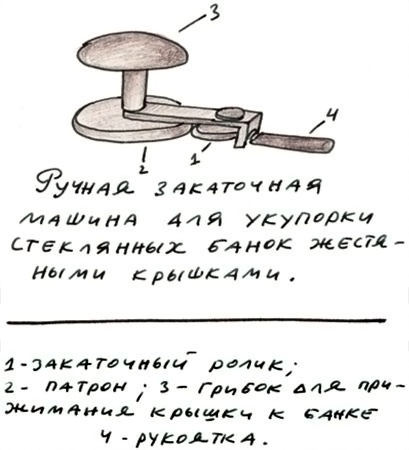 3
4
2
1
Ручная закаточная
машина для укупорки
стеклянных банок жестя-
ными крышками.
1-закаточный ролик;
2- патрон; 3- грибок для при-
жимания крышки к банке
4- рукоятка.